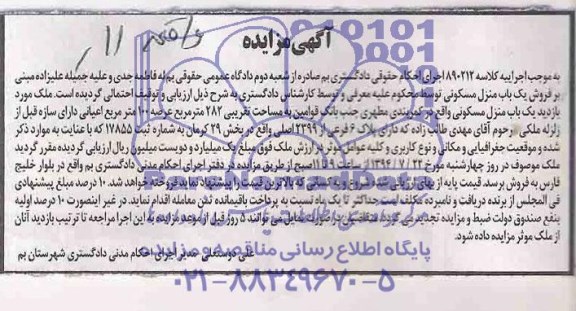 آگهی مزایده
به موجب اجراییه کلاسه ۸۹۰۲۱۲ اجرای احکام حقوقی دادگستری بم صادره از شعبه دوم دادگاه عمومی حقوقی بم له فاطمه جدی و علیه جمیله علیزاده مبنی
بر فروش یک باب منزل مسکونی توسط محکوم علیه معرفی و توسط کارشناس دادگستری به شرح ذیل ارزیابی و توقیف احتمالی گردیده است. ملک مورد
بازدید یک باب منزل مسکونی واقع در کمربندی مطهری جنب بانک قوامین به مساحت تقریبی ۲۸۲ مترمربع عرصه ۱۰۰ متر مربع اعیانی دارای سازه قبل از
زلزله ملکی مرحوم آقای مهدی طالب زاده که دارای پلاک ۶ فرعی از ۲۳۹۹ اصلی واقع در بخش ۲۹ کرمان به شماره ثبت ۱۷۸۵۵ که با عنایت به موارد ذکر
شده و موقعیت جغرافیایی و مکانی و نوع کاربری و کلیه عوامل موثر بر ارزش ملک فوق مبلغ یک میلیارد و دویست میلیون ریال ارزیابی گردیده مقرر گردید
ملک موصوف در روز چهارشنبه مورخ ۱۳۹۴/۷/۲۲ از ساعت ۹ الی ۱۱ صبح از طریق مزایده در دفتر اجرای احکام مدنی دادگستری بم واقع در بلوار خلیج
فارس به فروش برسد. قیمت پایه از بهای ارزیابی شده شروع و به کسانی که بالاترین قیمت را پیشنهاد نماید فروخته خواهد شد. ۱۰ درصد مبلغ پیشنهادی
فی المجلس از برنده دریافت و نامبرده مکلف است حداکثر تا یک ماه نسبت به پرداخت باقیمانده ثمن معامله اقدام نماید. در غیر اینصورت ۱۰ درصد اولیه
بنفع صندوق دولت ضبط و مزایده تجدید می گردد. متقاضیان در صورت تمایل می توانند ۵ روز قبل از موعد مزایده به این اجرا مراجعه تا ترتیب بازدید آنان
از ملک موثر مزایده داده شود.
علی دوستعلی مدیر اجرای احکام مدنی دادگستری شهرستان بم
پایگاه اطلاع رسانی مناقصه و مزایده
۰۲۱-۸۸۳۴۹۶۷۰-۵